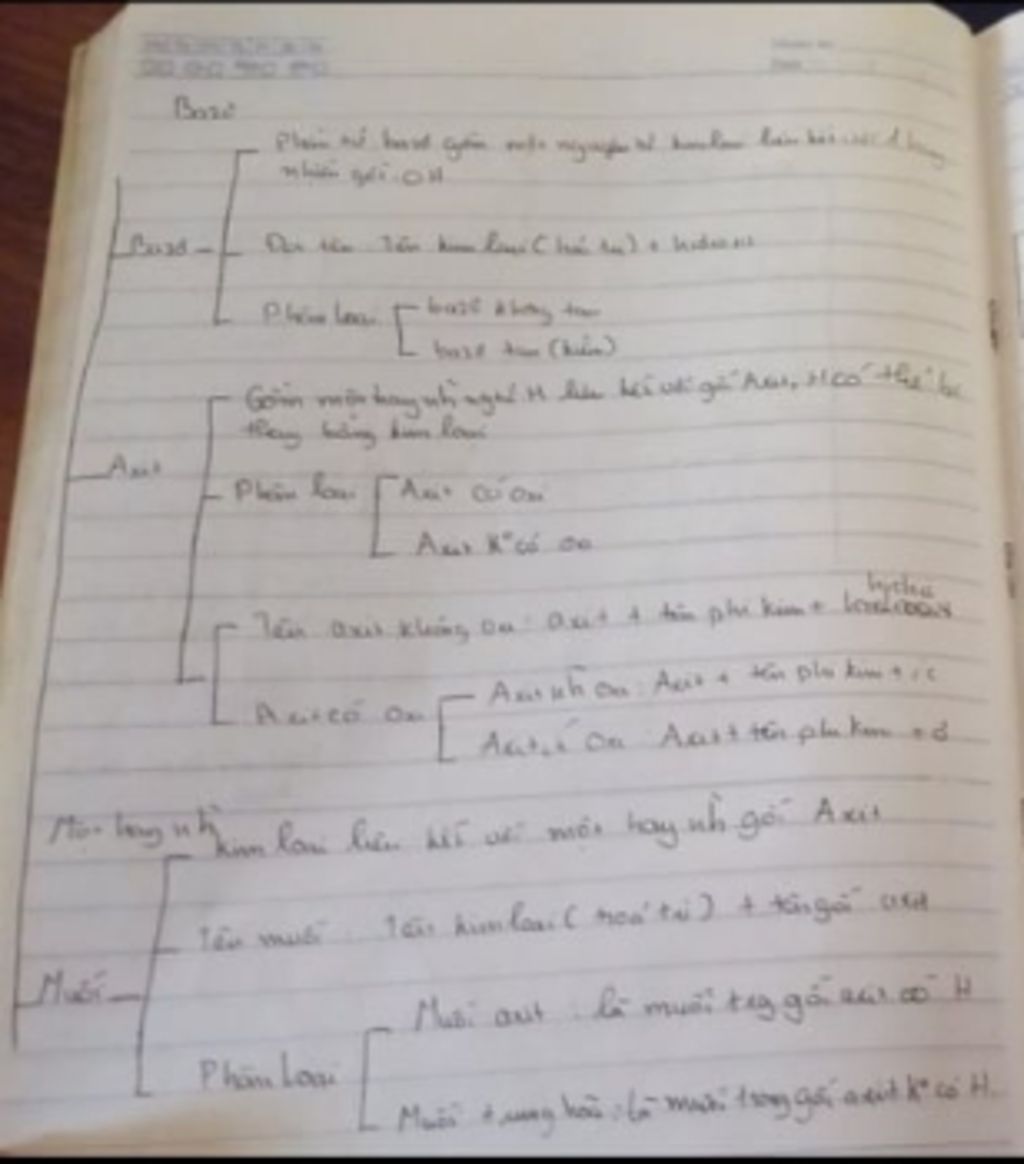 Bazơ
Phân tử bazơ gồm một nguyên tử kim loại liên kết với 1 hay
nhiều gốc OH
Bazơ
Tên kim loại (hoá trị) + hidroxit
Phân loại
bazơ không tan
bazơ tan (kiềm)
Gồm một hay nh ngtử H liên kết với gốc Axit, H có thể
thay bằng kim loại
Axit
Phân loại
Axit có oxi
Axit K° có oxi
hydric
Tên axit không oxi: axit + tên phi kim +
Axit có oxi
Axit nh oxi: Axit + tên phi kim + ic
Axit ít oxi: Axit + tên phi kim + ơ
Một hay nh
kim loại liên kết với một hay nh gốc Axit
Tên muối: Tên kim loại (hoá trị) + tên gốc axit
Muối
Muối axit: là muối trg gốc axit có H
Phân Loại
Muối trung hoà: là muối trong gốc axit K° có H.